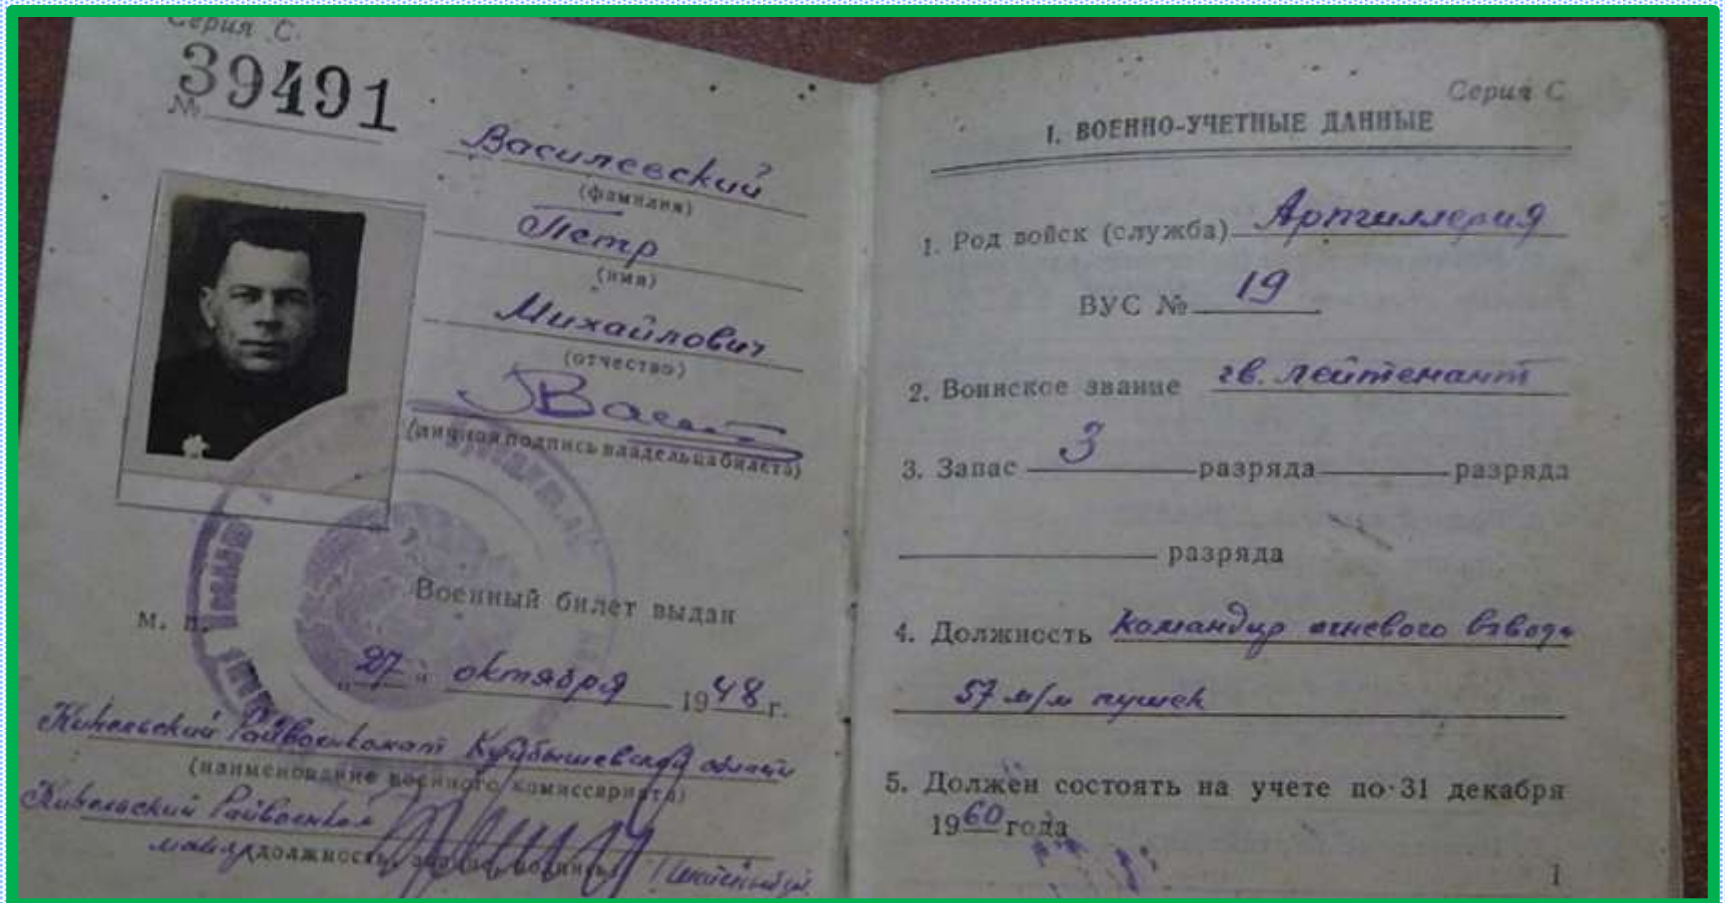 Серия С.
№ 39491
Василевский
(фамилия)
Петр
(имя)
Михайлович
(отчество)
(личная подпись владельца билета)
Военный билет выдан
М. П.
"27" октября 1948 г.
Кинельский Райвоенкомат Куйбышевской области
(наименование военного комиссариата)
Кинельский Райвоенком
майор
(должность, звание, подпись)
Серия С
I. ВОЕННО-УЧЕТНЫЕ ДАННЫЕ
1. Род войск (служба) Артиллерия
ВУС № 19
2. Воинское звание гв. лейтенант
3. Запас 3 разряда разряда
разряда
4. Должность командир огневого взвода
57 м/м пушек
5. Должен состоять на учете по 31 декабря
1960 года
1